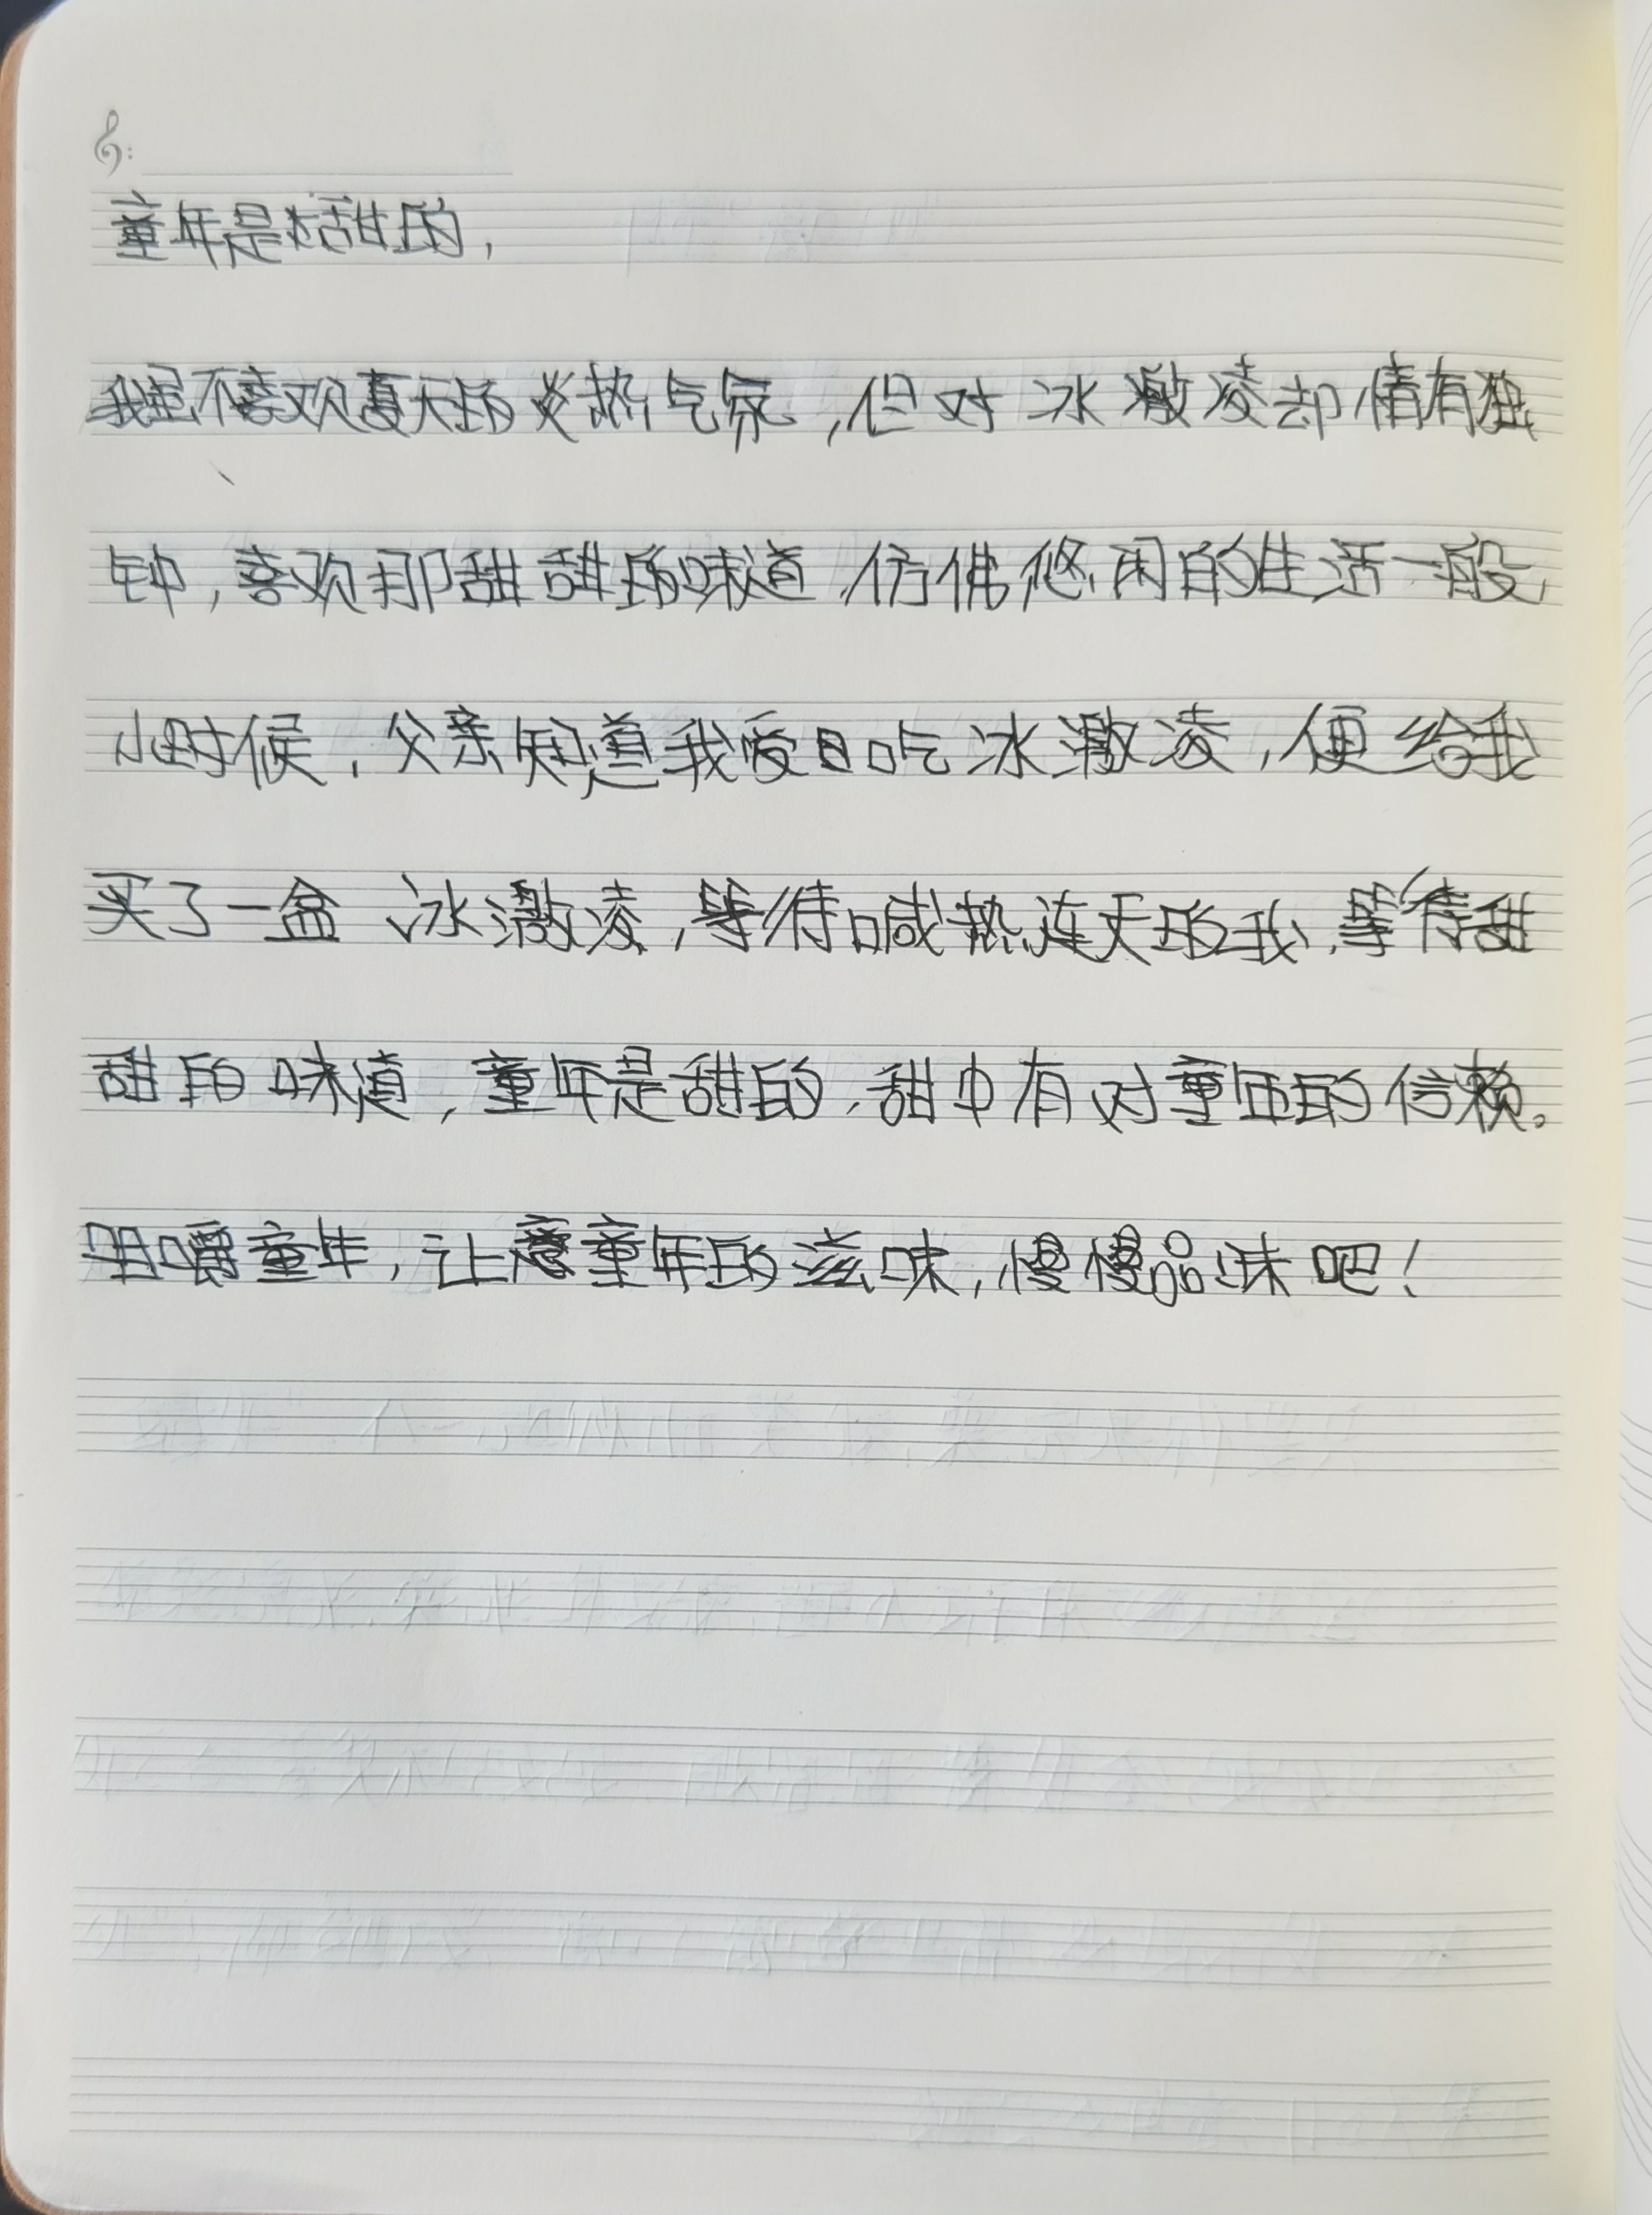 童年是甜的,
我虽不喜欢夏天的炎热气氛,但对冰激凌却情有独
钟,喜欢那甜甜的味道,仿佛悠闲的生活一般,
小时候,父亲知道我爱吃冰激凌,便给我
买了一盒冰激凌,等待喊热连天的我,等待甜
甜的味道,童年是甜的,甜中有对童年的信赖。
咀嚼童年,让童年的滋味,慢慢品味吧!